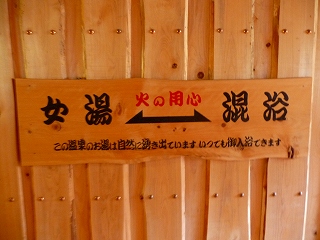 女湯 火の用心 混浴
この温泉のお湯は自然に湧き出ています いつでも御入浴できます